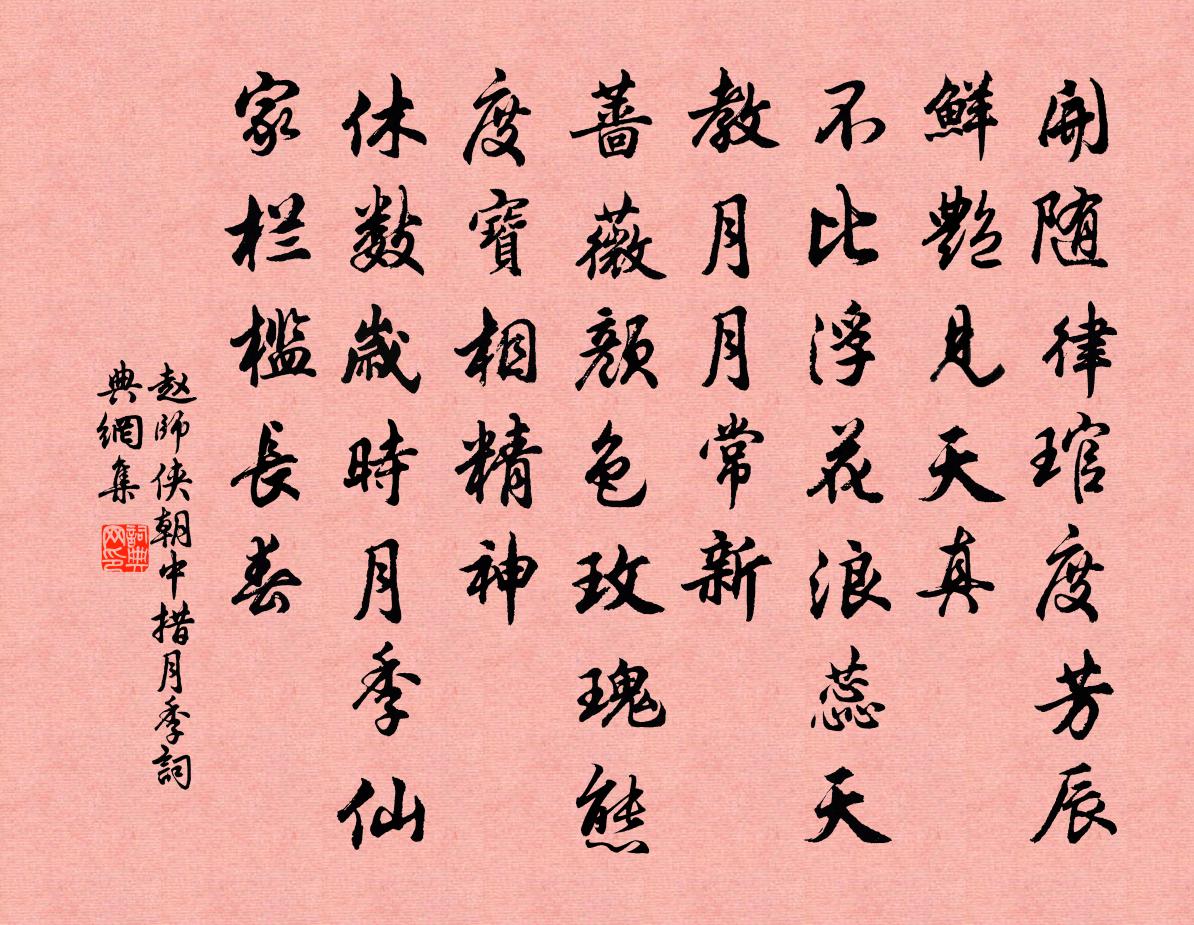 開随律琯度芳辰
鮮艷見天真
不比浮花浪蕊天
教月月常新
薔薇顔色玫瑰態
度寶相精神
休數歲時月季仙
家栏檻長春
赵師侠朝中措月季詞
典網集
詞典网印